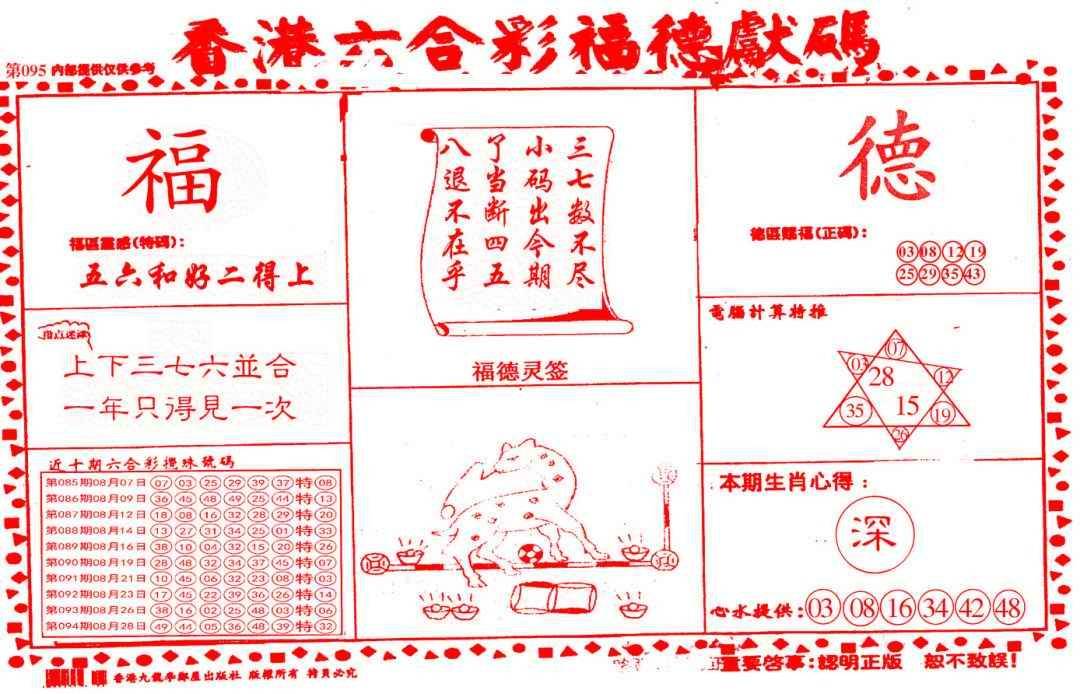 香港六合彩福德獻碼
第095 内部提供仅供参考
福
福區靈感(特碼):
五六和好二得上
指点迷津
上下三七六並合
一年只得見一次
近十期六合彩攪珠號碼
第085期08月07日 07 03 25 29 39 37 特 08
第086期08月09日 36 45 48 49 25 44 特 13
第087期08月12日 18 08 16 32 28 29 特 20
第088期08月14日 13 27 31 34 25 01 特 33
第089期08月16日 38 10 04 32 15 20 特 26
第090期08月19日 28 48 32 34 37 45 特 07
第091期08月21日 10 45 06 32 23 08 特 03
第092期08月23日 17 45 22 39 36 26 特 14
第093期08月26日 38 16 02 25 48 03 特 06
第094期08月28日 49 44 05 36 48 39 特 32
三七数不尽
小码出今期
了当断四五
八退不在乎
福德灵签
德
德區賜福(正碼):
03 08 12 19
25 29 35 43
電腦計算特推
07
03 28 12
35 15 19
26
本期生肖心得:
深
心水提供:03 08 16 34 42 48
香港九龍學鄰屋出版社 版權所有 特負必究
重要啓事:認明正版 恕不致誤!